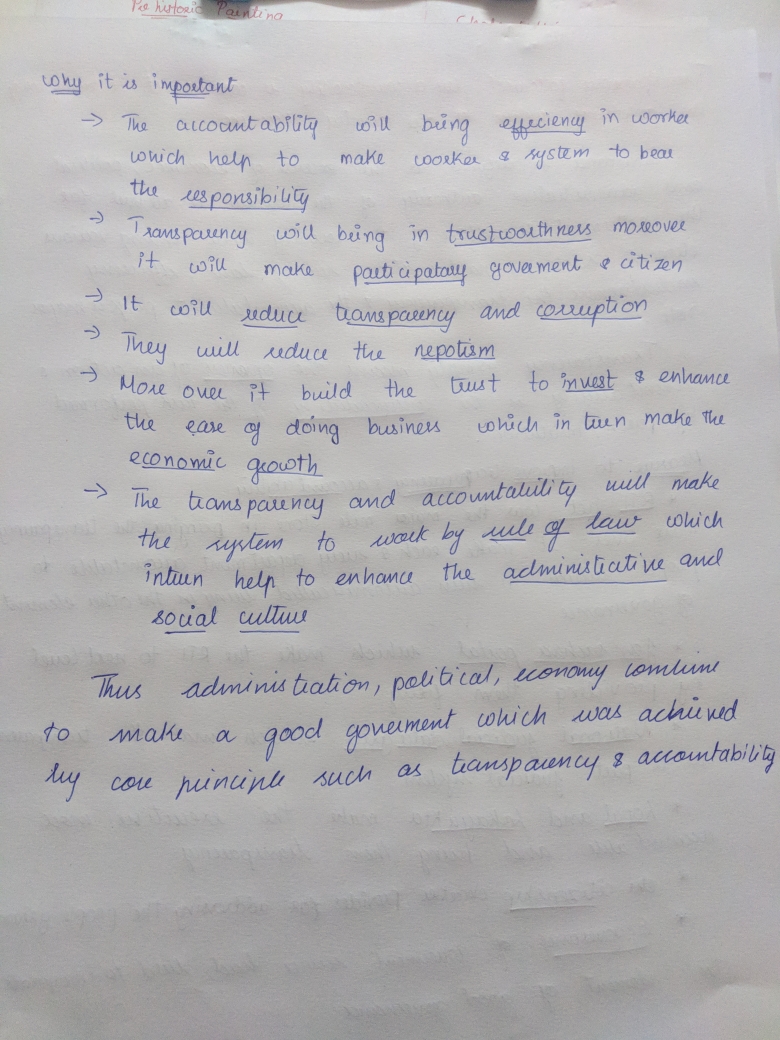 Pre historic Painting
why it is important
→ The accountability will being effeciency in worker
which help to make worker & system to bear
the responsibility
→ Transparency will being in trustworthness moreover
it will make participatary goverment & citizen
→ It will reduce transparency and corruption
→ They will reduce the nepotism
→ More over it build the trust to invest & enhance
the ease of doing business which in turn make the
economic growth
→ The transparency and accountability will make
the system to work by rule of law which
inturn help to enhance the administrative and
social culture
Thus administration, political, economy combine
to make a good goverment which was achieved
by core principle such as transparency & accountability